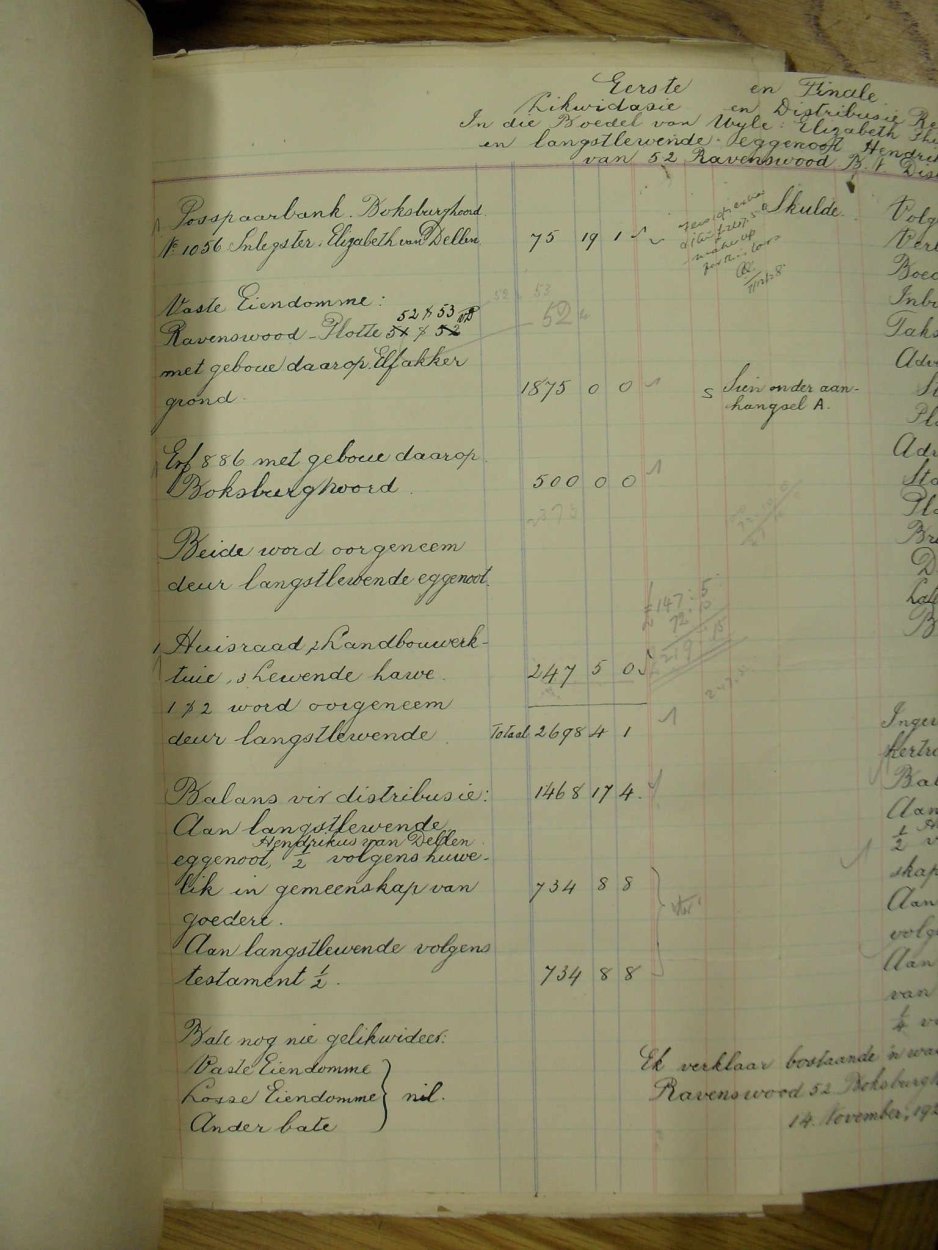 Eerste en Finale
Likwidasie en Distribusie Re
In die Boedel van Wyle: Elizabeth
en langstlewende eggenoot Hendrik
van 52 Ravenswood B. P. Dis
Posspaarbank. Boksburghoord
No 1056 Inlegster. Elizabeth van Dellen 75 19 1
Skulde.
Vaste Eiendomme:
52 & 53
Ravenswood - Plotte 51 & 52
52
met geboue daarop. Elf akker
grond. 1875 0 0
Sien onder aan-
hangsel A.
Erf 886 met geboue daarop
Boksburg Noord. 500 0 0
2375
Beide word oorgeneem
deur langstlewende eggenoot.
147 : 5
72 : 10
219 : 15
Huisraad, Landbouwerk-
tuie, & Lewende hawe. 247 5 0
1 & 2 word oorgeneem
deur langstlewende Totaal 2698 4 1
Balans vir distribusie: 1468 17 4.
Aan langstlewende
Hendrikus van Dellen
eggenoot, ½ volgens huwe-
lik in gemeenskap van 734 8 8
goedere.
Aan langstlewende volgens
testament ½. 734 8 8
Bate nog nie gelikwideer:
Vaste Eiendomme
Losse Eiendomme } nil.
Ander bate
Volg
Boed
Inb
Taks
Adv
Adv
Sta
Bal
Aan
½ v
skap
Aan
volg
Aan
van
¼ v
Ek verklaar bostaande 'n wa
Ravenswood 52 Boksburg
14. November, 192